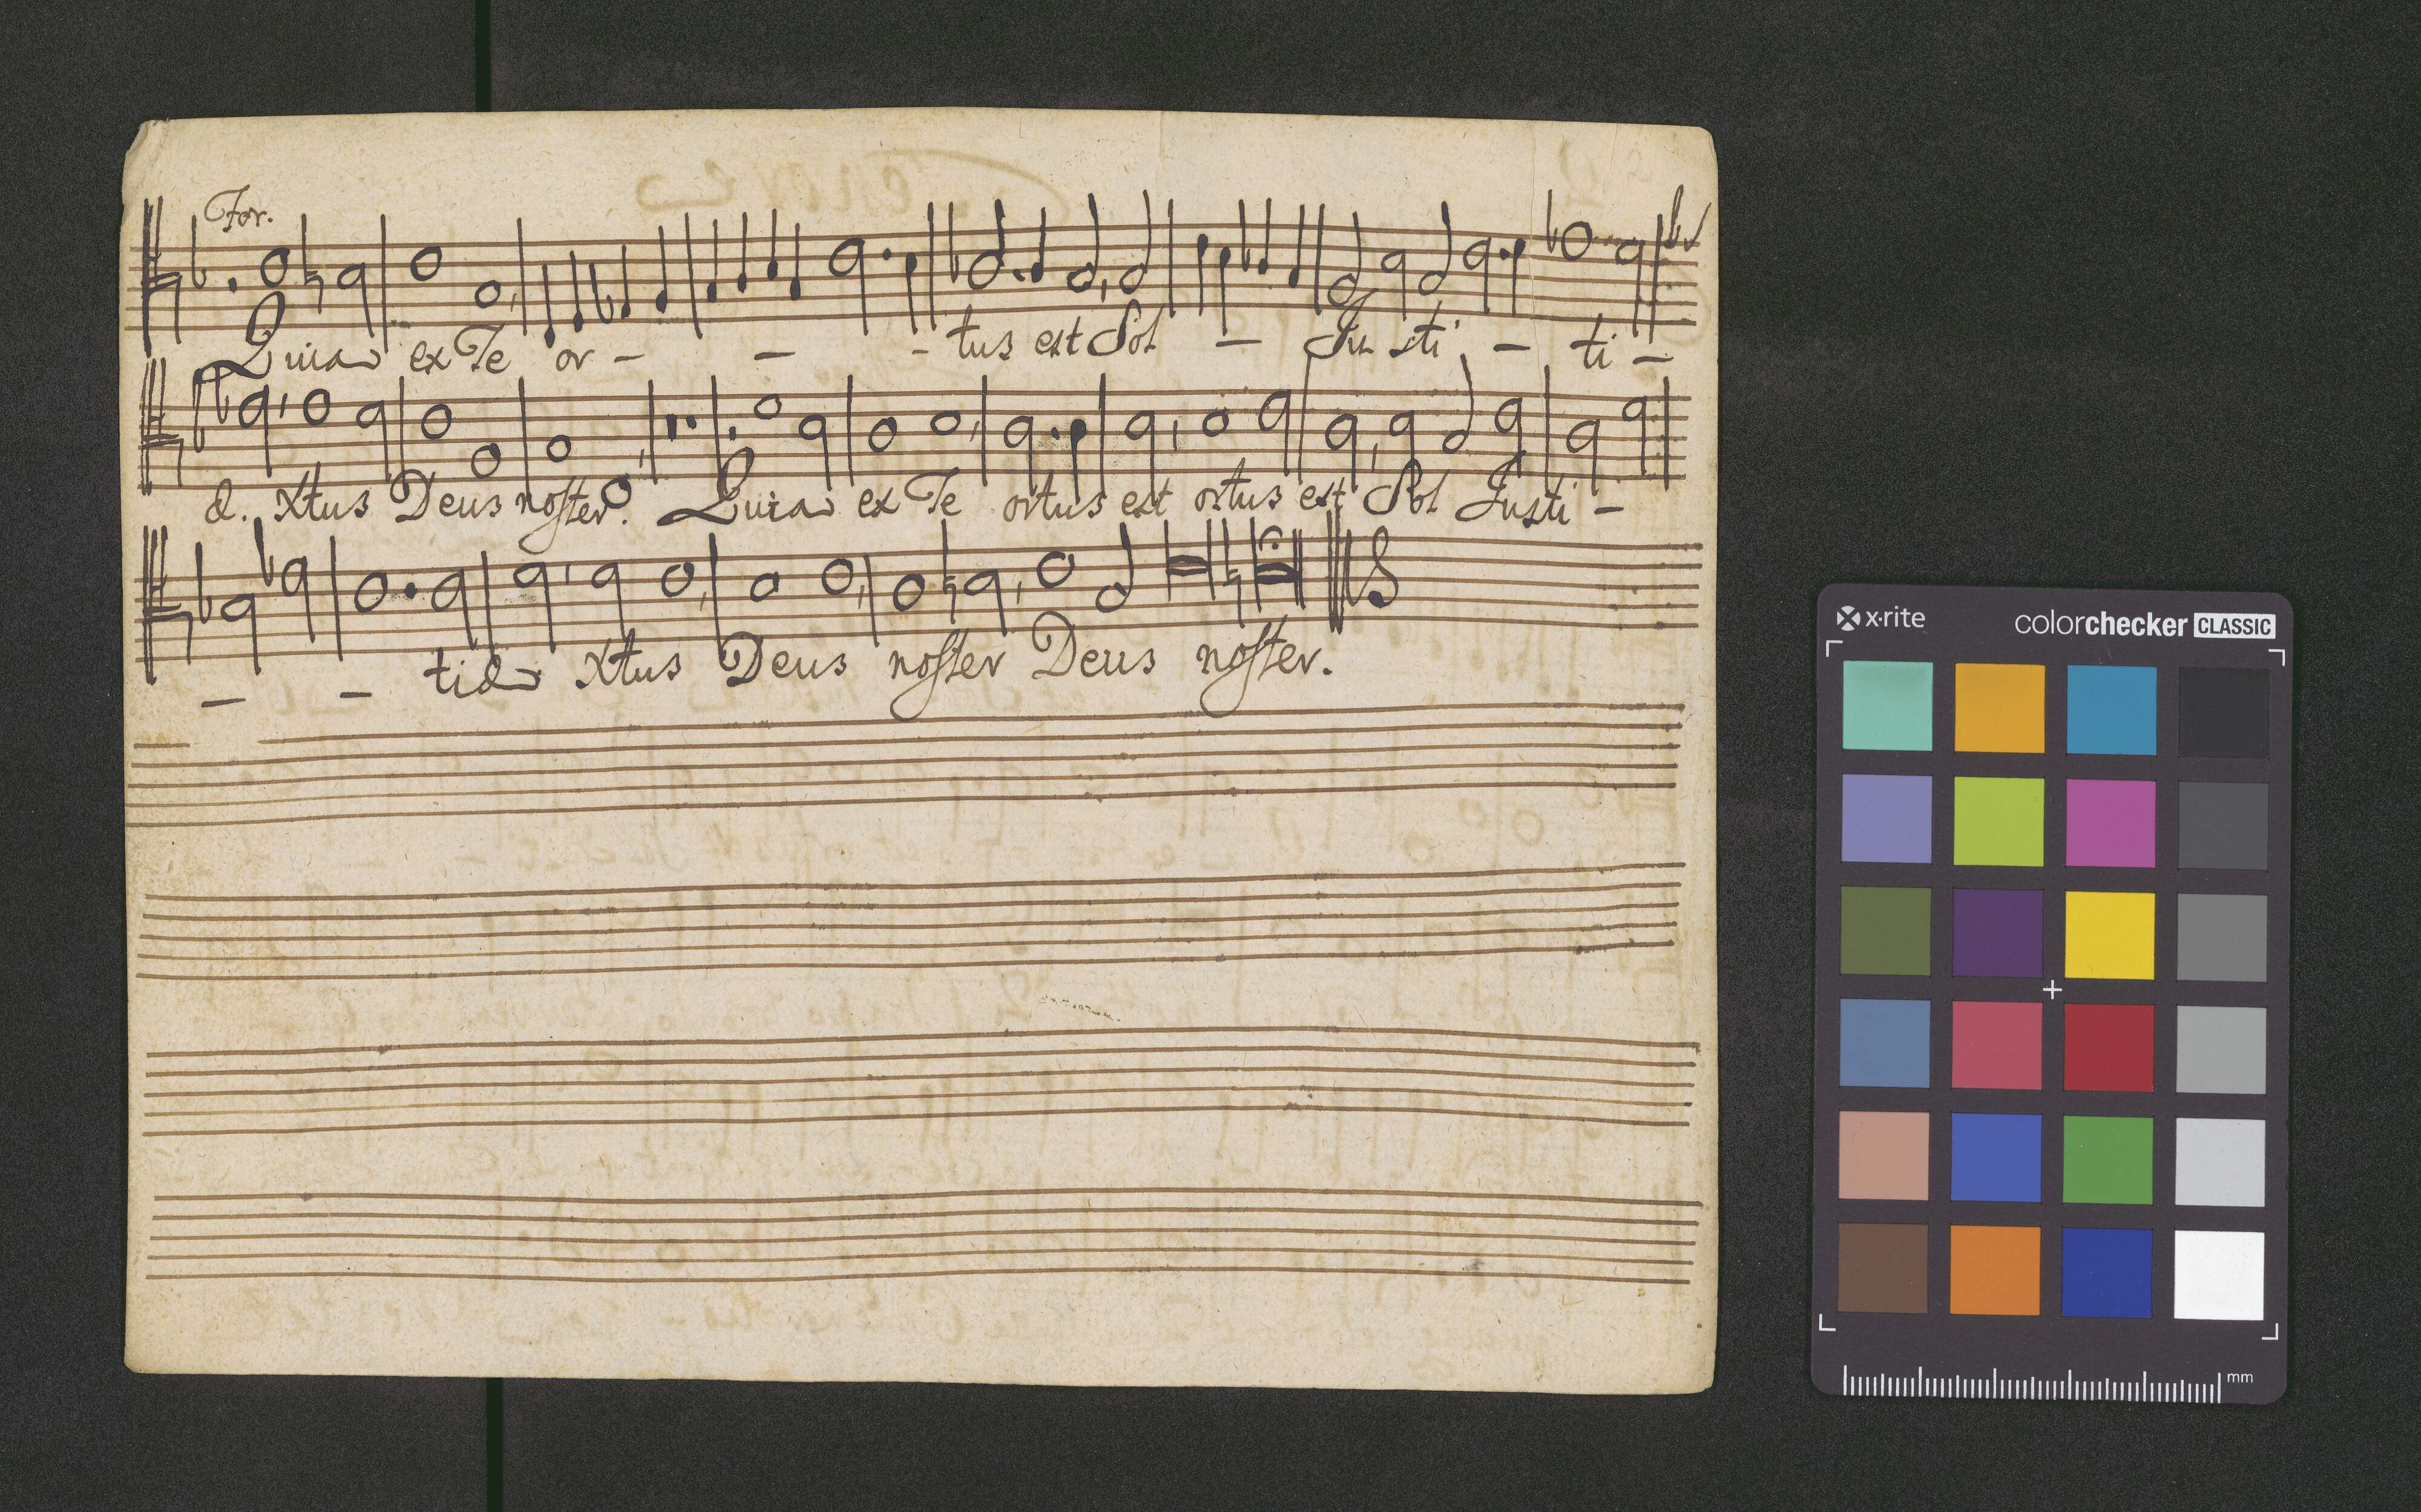 For.
Quia ex Te or - - - tus est Sol - Ju sti - ti -
æ. Xtus Deus noster. Quia ex Te ortus est ortus est Sol Justi -
- - tiæ Xtus Deus noster Deus noster.
x-rite
colorchecker CLASSIC
mm